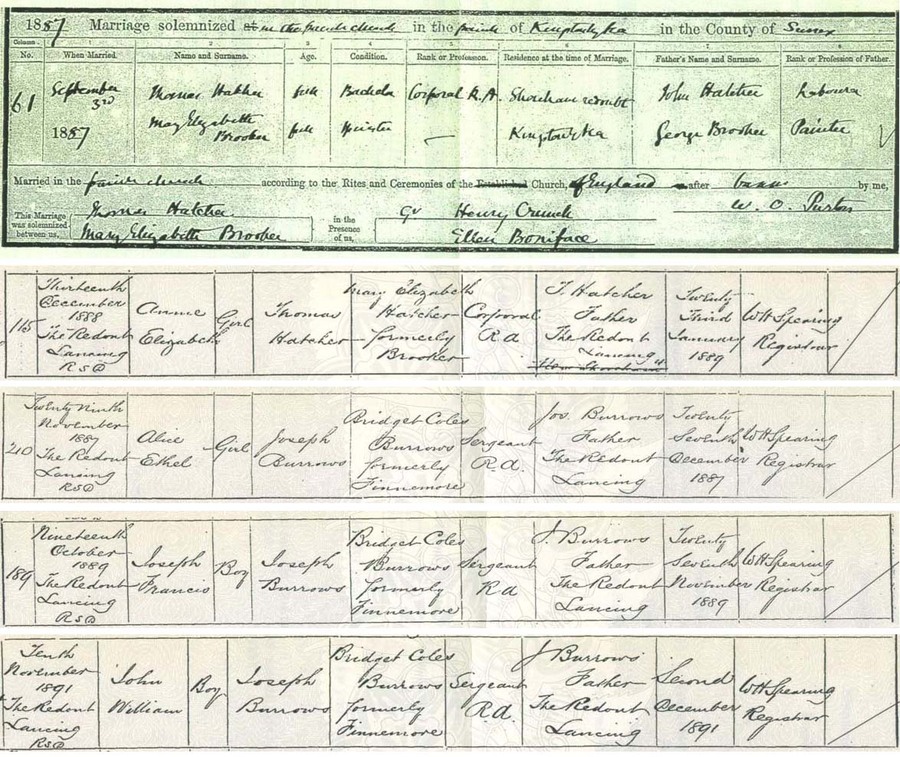 1887 Marriage solemnized at in the parish church in the parish of Kingston by Sea in the County of Sussex
Column. 2 3 4 5 6 7 8
No. When Married. Name and Surname. Age. Condition. Rank or Profession. Residence at the time of Marriage. Father's Name and Surname. Rank or Profession of Father.
61 September 3rd 1887 Thomas Hatcher full Bachelor Corporal R.A. Shoreham redoubt John Hatcher Labourer
Mary Elizabeth Brooker full Spinster — Kingston by Sea George Brooker Painter
Married in the parish church according to the Rites and Ceremonies of the Established Church, of England after banns by me,
This Marriage was solemnized between us,
Thomas Hatcher
Mary Elizabeth Brooker
in the Presence of us,
Henry Crunch
Ellen Boniface
W. O.
115
Thirteenth
December
1888
The Redout
Lancing
RSD
Annie
Elizabeth
Girl
Thomas
Hatcher
Mary Elizabeth
Hatcher
formerly
Brooker
Corporal
R.A
T. Hatcher
Father
The Redout
Lancing
New Shoreham
Twenty
Third
January
1889
WH Spearing
Registrar
210
Twenty Ninth
November
1887
The Redout
Lancing
RSD
Alice
Ethel
Girl
Joseph
Burrows
Bridget Coles
Burrows
formerly
Finnemore
Sergeant
R.A.
Jos. Burrows
Father
The Redout
Lancing
Twenty
Seventh
December
1887
WH Spearing
Registrar
189
Nineteenth
October
1889
The Redout
Lancing
RSD
Joseph
Francis
Boy
Joseph
Burrows
Bridget Coles
Burrows
formerly
Finnemore
Sergeant
RA
J. Burrows
Father
The Redout
Lancing
Twenty
Seventh
November
1889
WH Spearing
Registrar
Tenth
November
1891
The Redout
Lancing
RSD
John
William
Boy
Joseph
Burrows
Bridget Coles
Burrows
formerly
Finnemore
Sergeant
R.A.
J Burrows
Father
The Redout
Lancing
Second
December
1891
WH Spearing
Registrar